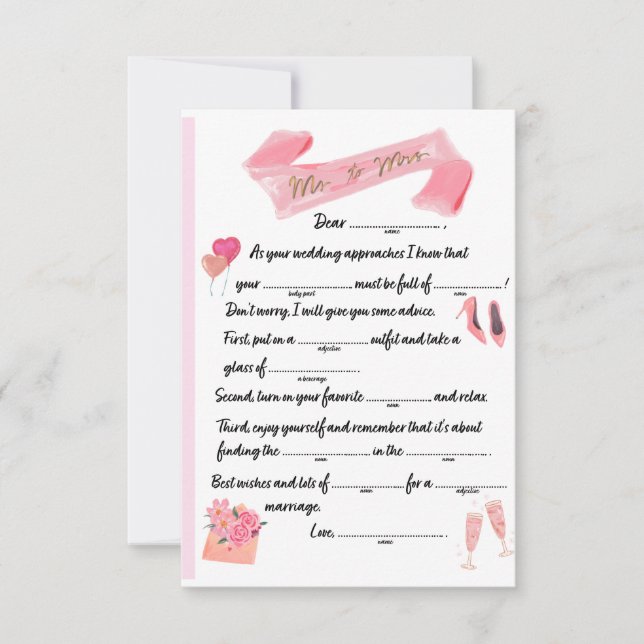 Ms to Mrs
Dear ........................ ,
name
As your wedding approaches I know that
your ........................ must be full of .................. !
body part noun
Don't worry, I will give you some advice.
First, put on a .................. outfit and take a
adjective
glass of ........................ .
a beverage
Second, turn on your favorite .................. and relax.
noun
Third, enjoy yourself and remember that it's about
finding the .................. in the .................. .
noun noun
Best wishes and lots of .................. for a ..................
noun adjective
marriage.
Love, ........................ .
name